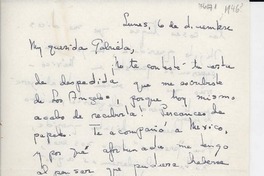 1946
Lunes, 6 de diciembre
My querida Gabriela,
No te contesté tu carta
de despedida que me escribiste
de Los Angeles, porque hoy mismo
acabo de recibirla! Percances de
papeles. Te acompañé a México,
y por qué afortunada me tengo
al pensar que pudiera haberse